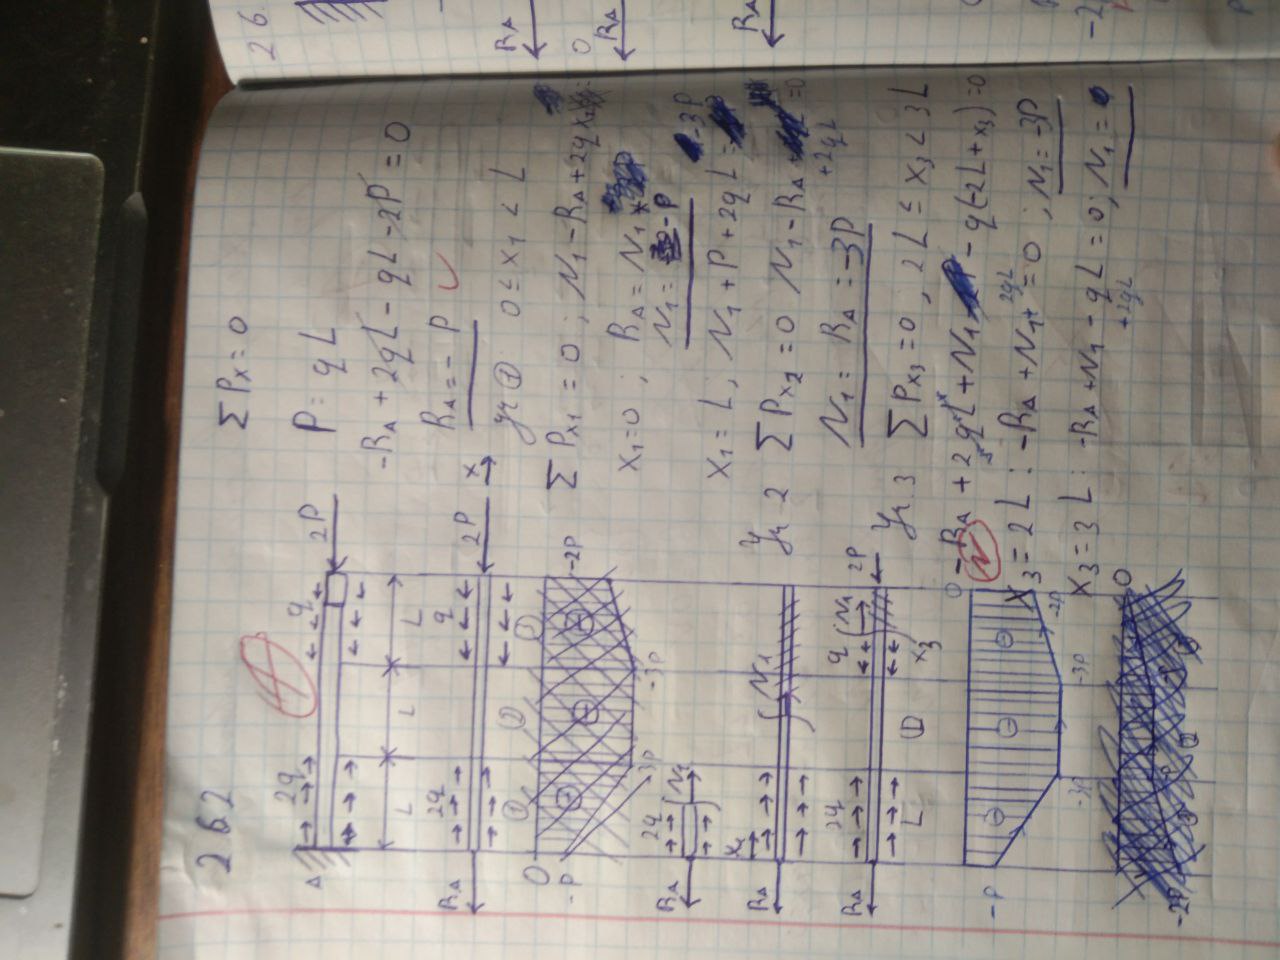 2.6.2
A
2q
q
2P
L
L
L
R_A
2q
q
2P
x
①
②
③
0
-P
-3P
-3P
-2P
R_A
2q
N_1
R_A
x_2
N_1
R_A
2q
q
N_1
2P
L
x_3
N
0
-P
-3P
-3P
-2P
0
-2P
ΣP_x = 0
P = qL
-R_A + 2qL - qL - 2P = 0
R_A = -P
уч ① 0 ≤ x_1 < L
ΣP_x1 = 0; N_1 - R_A + 2q
x_1 = 0; R_A = N_1
N_1 = -P
x_1 = L; N_1 + P + 2qL = -3P
уч 2 ΣP_x2 = 0 N_1 - R_A + 2qL = 0
N_1 = R_A = -3P
уч. 3 ΣP_x3 = 0, 2L ≤ x_3 < 3L
-R_A + 2qL + N_1 - q(-2L + x_3) = 0
x_3 = 2L: -R_A + N_1 + 2qL = 0; N_1 = -3P
x_3 = 3L: -R_A + N_1 - qL + 2qL = 0; N_1 =
2 6.
R_A
0
R_A
R_A